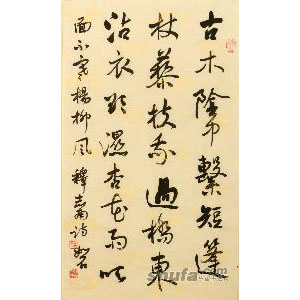 古木陰中繫短篷
杖藜扶我過橋東
沾衣欲濕杏花雨吹
面不寒楊柳風 釋志南詩